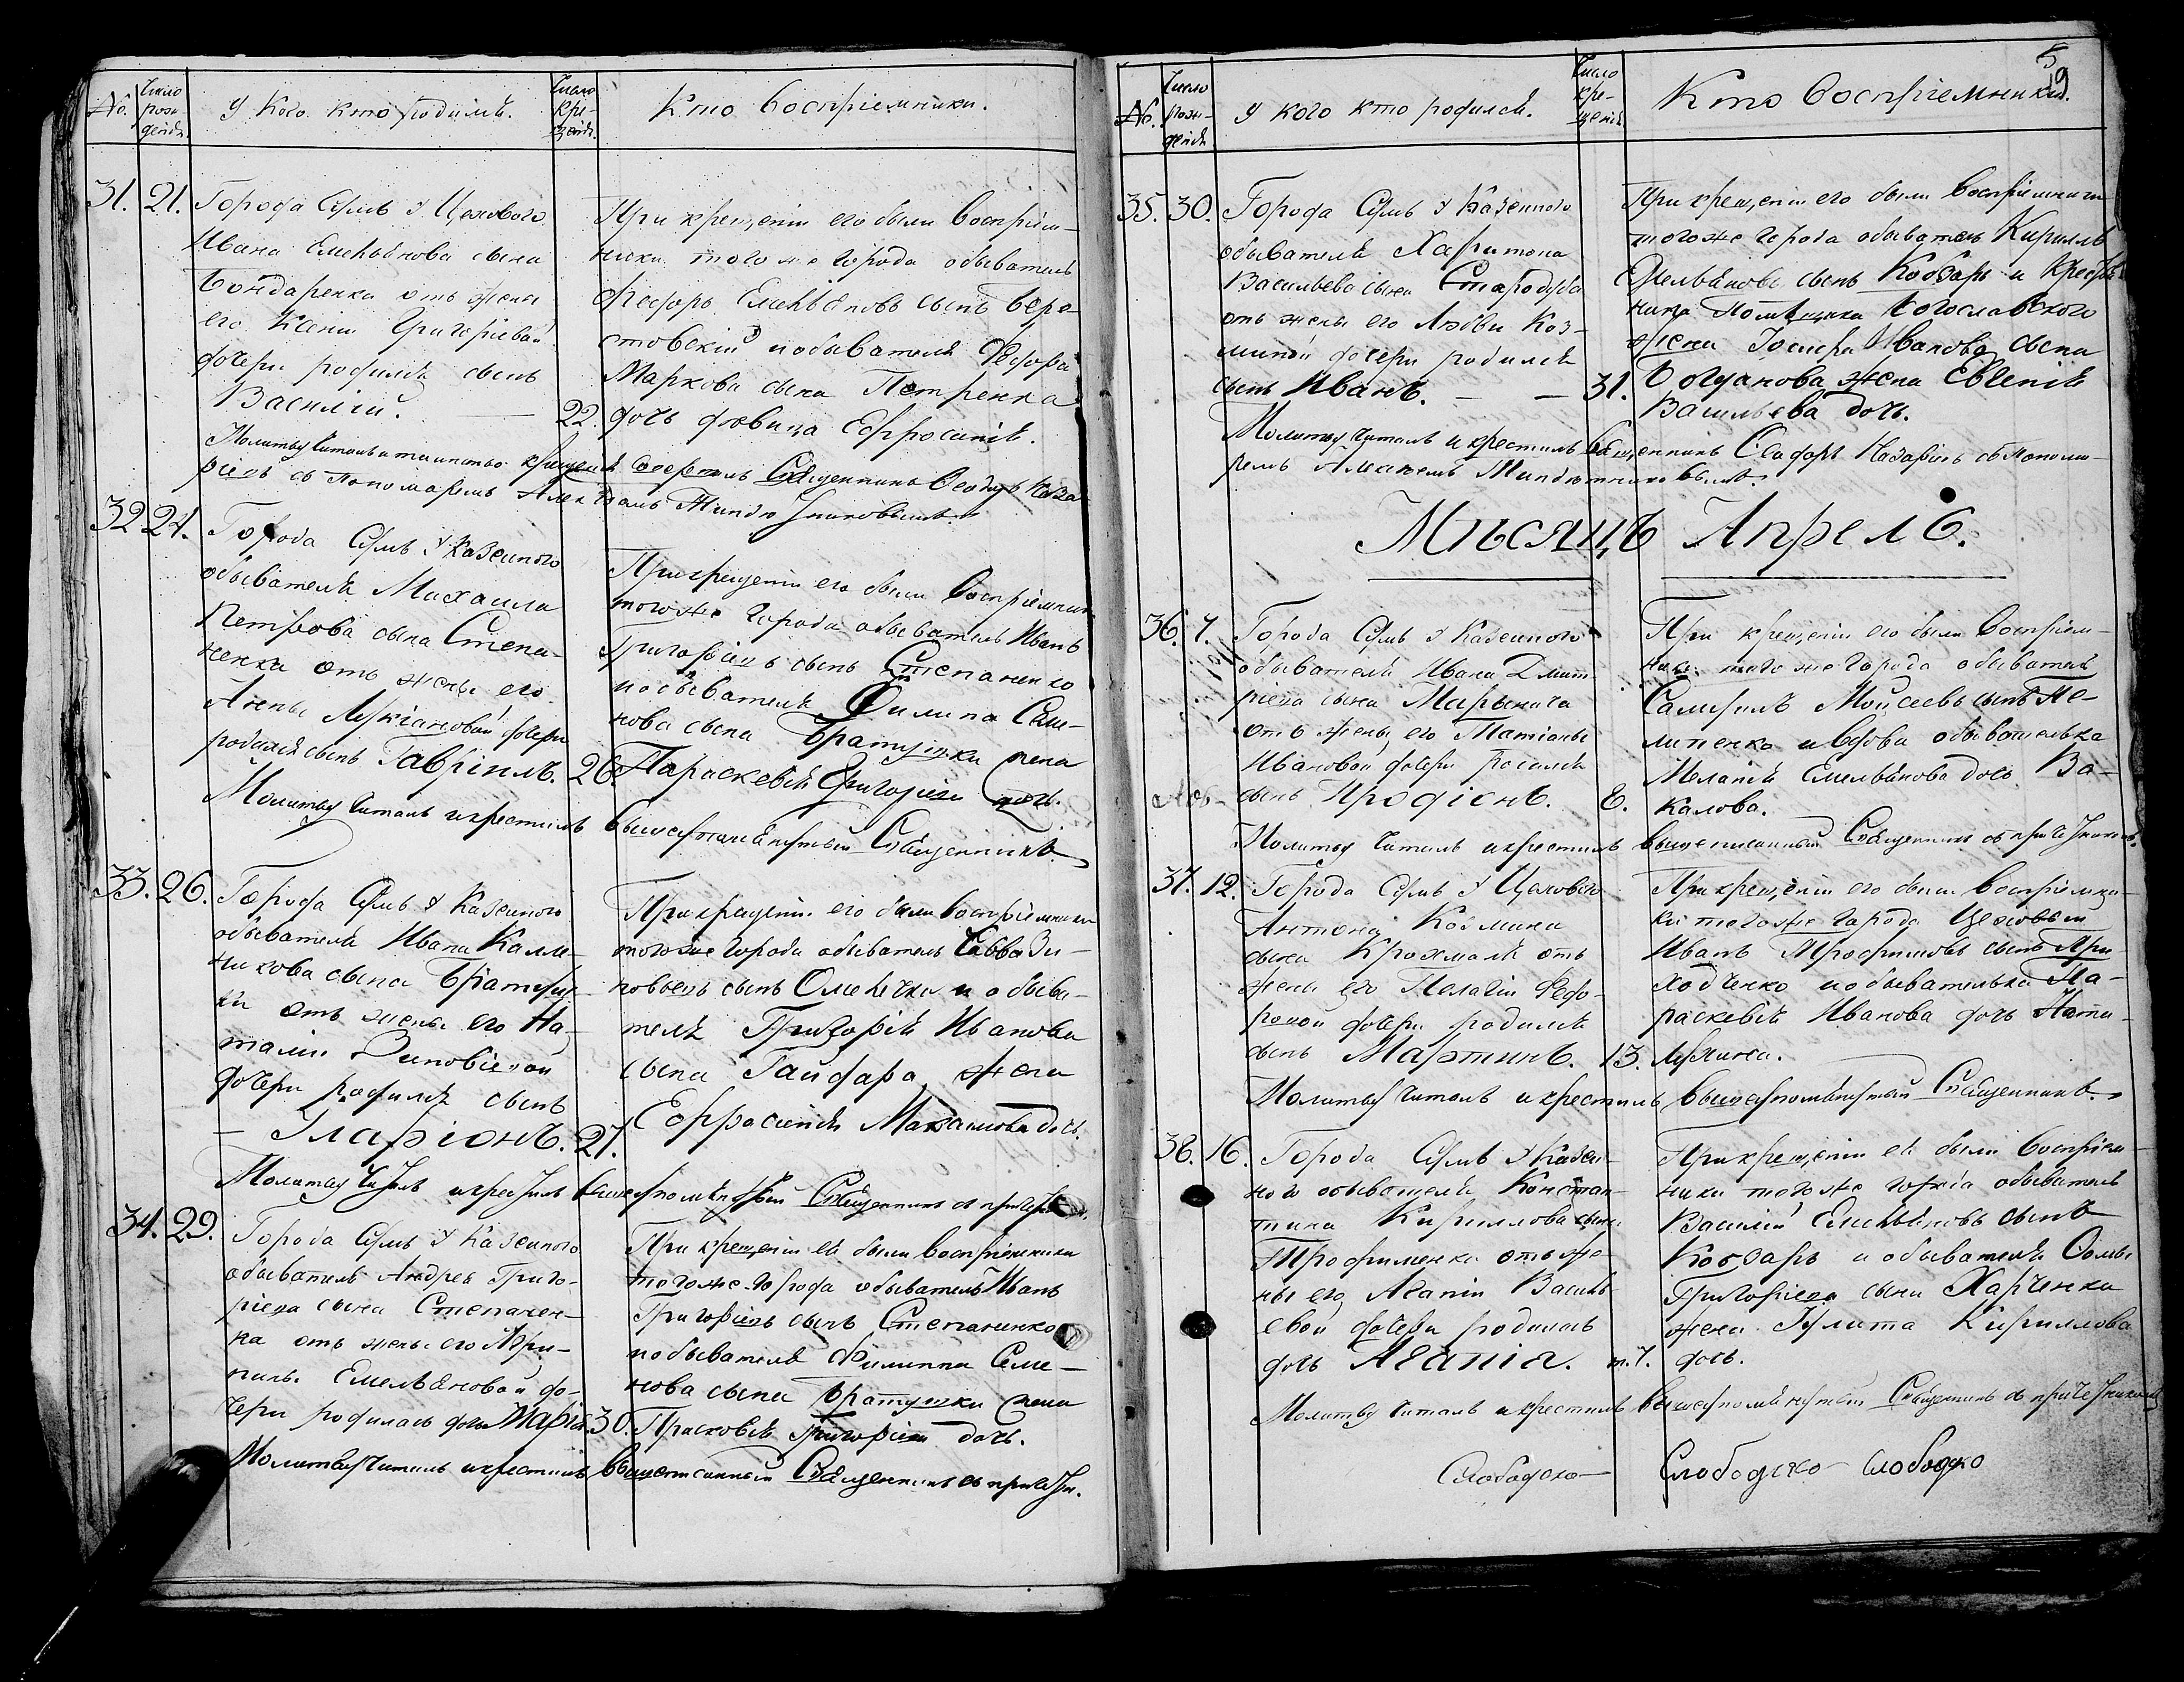 №.
Число рож- денія.
У кого кто родился.
Число кре- щенія.
Кто воспріемники.
31. 21.
Города Сумъ у Цеховаго
Ивана Емельянова сына
Бондаренка отъ жены
его Ксеніи Григоріевой
дочери родился сынъ
Василій. — 22.
При крещеніи его были воспріем-
ники того же города обыватель
Федоръ Емельяновъ сынъ Бере-
стовскій и обывателя Федора
Маркова сына Петренка
дочь девица Ефросинія.
Молитву читалъ и таинство крещенія совершилъ Священникъ Феодоръ Наза-
ріевъ съ Пономаремъ
32. 24.
Города Сумъ у Казеннаго
обывателя Михаила
Петрова сына Степа-
ненка отъ жены его
Анны Лукіановой дочери
родился сынъ Гавріилъ. 26.
При крещеніи его были воспріемники
того же города обыватель Иванъ
Григоріевъ сынъ Степаненко
и обывателя Филипа Семе-
нова сына Братушки жена
Параскевія Григоріева дочь.
Молитву читалъ и крестилъ вышеупомянутый Священникъ.
33. 26.
Города Сумъ у Казеннаго
обывателя Ивана Калли-
никова сына Братуш-
ки отъ жены его На-
таліи Зиновіевой
дочери родился сынъ
— Иларіонъ. 27.
При крещеніи его были воспріемники
того же города обыватель Савва Зи-
новьевъ сынъ Омельченко и обыва-
теля Григорія Иванова
сына Гайдара жена
Ефросинія Максимова дочь.
Молитву читалъ и крестилъ вышеупомянутый Священникъ съ причетн.
34. 29.
Города Сумъ у Казеннаго
обывателя Андрея Григо-
ріева сына Степанен-
ка отъ жены его Ири-
ны Емельяновой до-
чери родилась дочь Марія. 30.
При крещеніи ея были воспріемники
того же города обыватель Иванъ
Григоріевъ сынъ Степаненко
и обывателя Филиппа Семе-
нова сына Братушки жена
Прасковія Григоріева дочь.
Молитву читалъ и крестилъ вышеписанный Священникъ съ причетн.
№.
Число рож- денія
У кого кто родился.
Число кре- щенія
Кто воспріемники.
35. 30.
Города Сумъ у Казеннаго
обывателя Харитона
Васильева сына Стародуба
отъ жены его Любви Коз-
миной дочери родился
сынъ Иванъ. — — 31.
При крещеніи его были воспріемники
того же города обыватель Кириллъ
Емельяновъ сынъ Кобзарь и
Помѣщика Богославского
Иванова сына
Богданова жена Евгенія
Васильева дочь.
Молитву читалъ и крестилъ Священникъ Феодоръ Назаріевъ съ Понома-
ремъ
Мѣсяцъ Апрель.
36. 7.
Города Сумъ у Казеннаго
обывателя Ивана Дмит-
ріева сына
отъ жены его Татіаны
Ивановой дочери родился
сынъ Иродіонъ. 8.
При крещеніи его были воспріем-
ники того же города обыватель
Моисеевъ сынъ Пе-
липенко и вдова обывателька
Меланія Емельянова дочь Ва-
калова.
Молитву читалъ и крестилъ вышеписанный Священникъ съ причетникомъ.
37. 12.
Города Сумъ у Цеховаго
Антона Козмина
сына Крохмаля отъ
жены его Пелагіи Федо-
ровой дочери родился
сынъ Мартинъ. 13.
При крещеніи его были воспріемни-
ки того же города Цеховый
Иванъ Трофимовъ сынъ При-
ходченко и обывателька Па-
раскевія Иванова дочь
Молитву читалъ и крестилъ вышеупомянутый Священникъ.
38. 16.
Города Сумъ у Казен-
наго обывателя Констан-
тина Кириллова сына
Трофименка отъ же-
ны его Агапіи Василь-
евой дочери родилась
дочь Агапія. 17.
При крещеніи ея были воспріем-
ники того же города обыватель
Василій Емельяновъ сынъ
Кобзарь и обывателя Фомы
Григоріева сына Харченка
жена Улита Кириллова
дочь.
Молитву читалъ и крестилъ вышеупомянутый Священникъ съ причетникомъ
Слободско Слободско Слободско